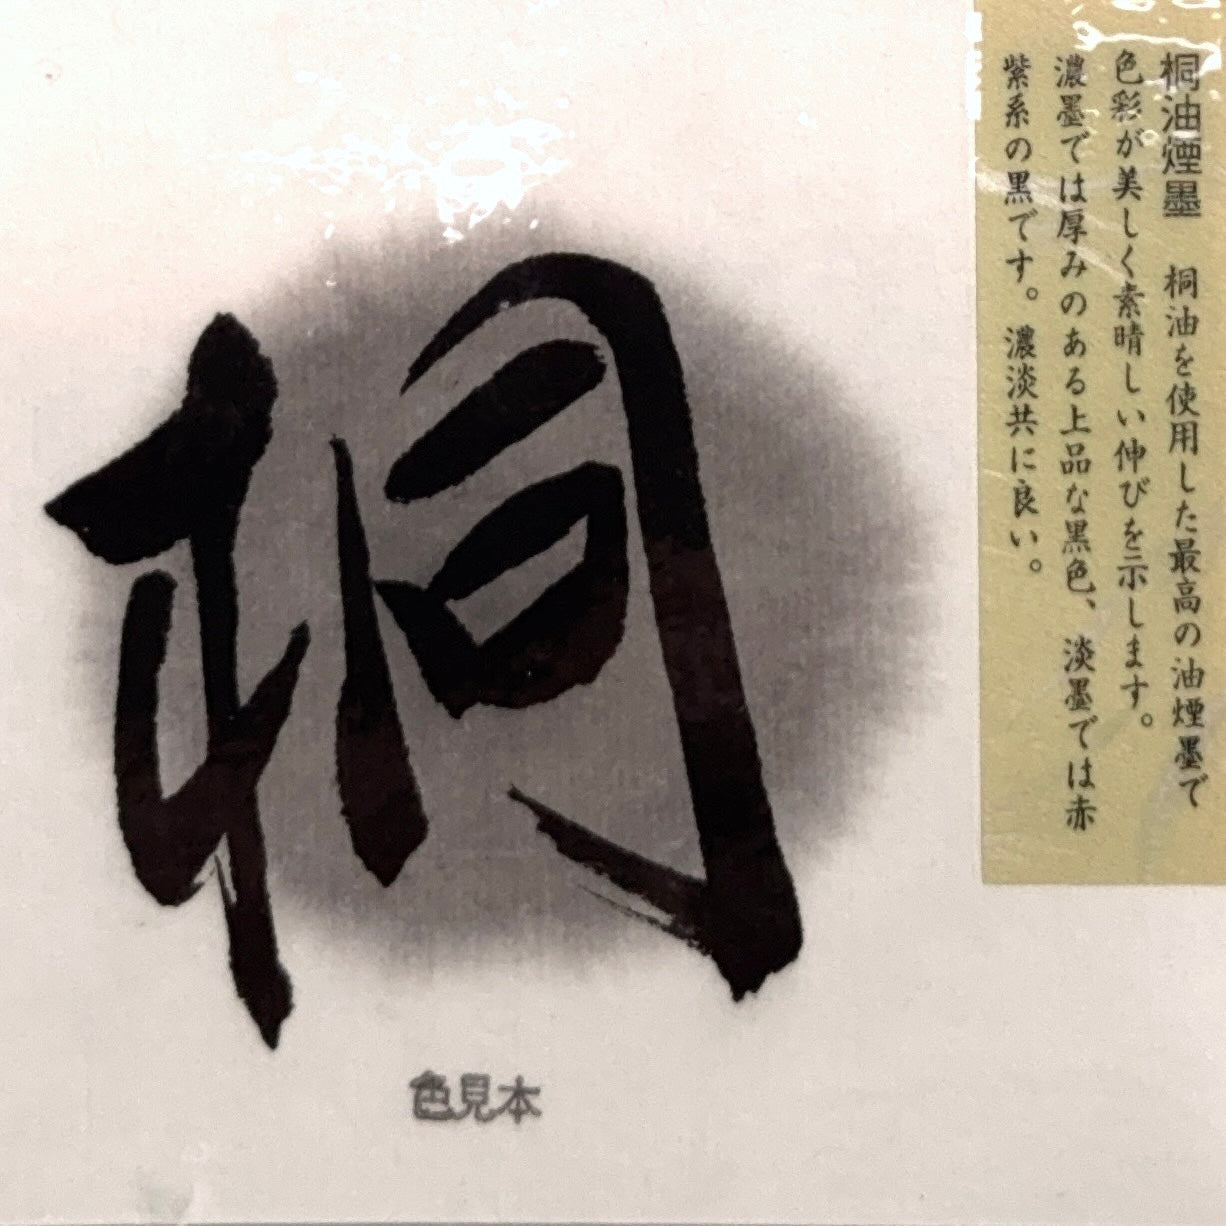 桐油煙墨　桐油を使用した最高の油煙墨で
色彩が美しく素晴しい伸びを示します。
濃墨では厚みのある上品な黒色、淡墨では赤
紫系の黒です。濃淡共に良い。
桐
色見本